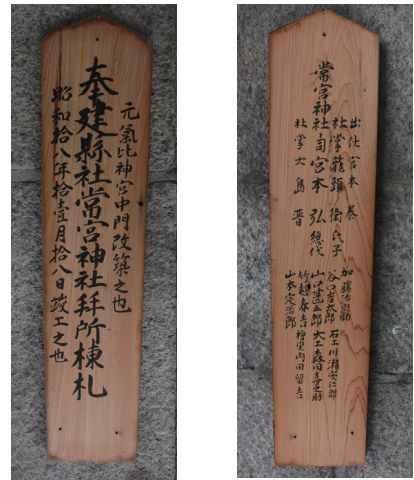 元氣比神宮中門改築之也
奉建縣社常宮神社拜所棟札
昭和拾八年拾壹月拾八日竣工之也
出仕宮本 泰
社掌龍頭 衛 氏子
常宮神社司宮本 弘 總代
社掌大島 晋
加藤治
谷口吉太郎 石工川瀬安治郎
山口甚五郎 大工森田喜之助
竹越春吉 檜皮内田留吉
山本定治郎